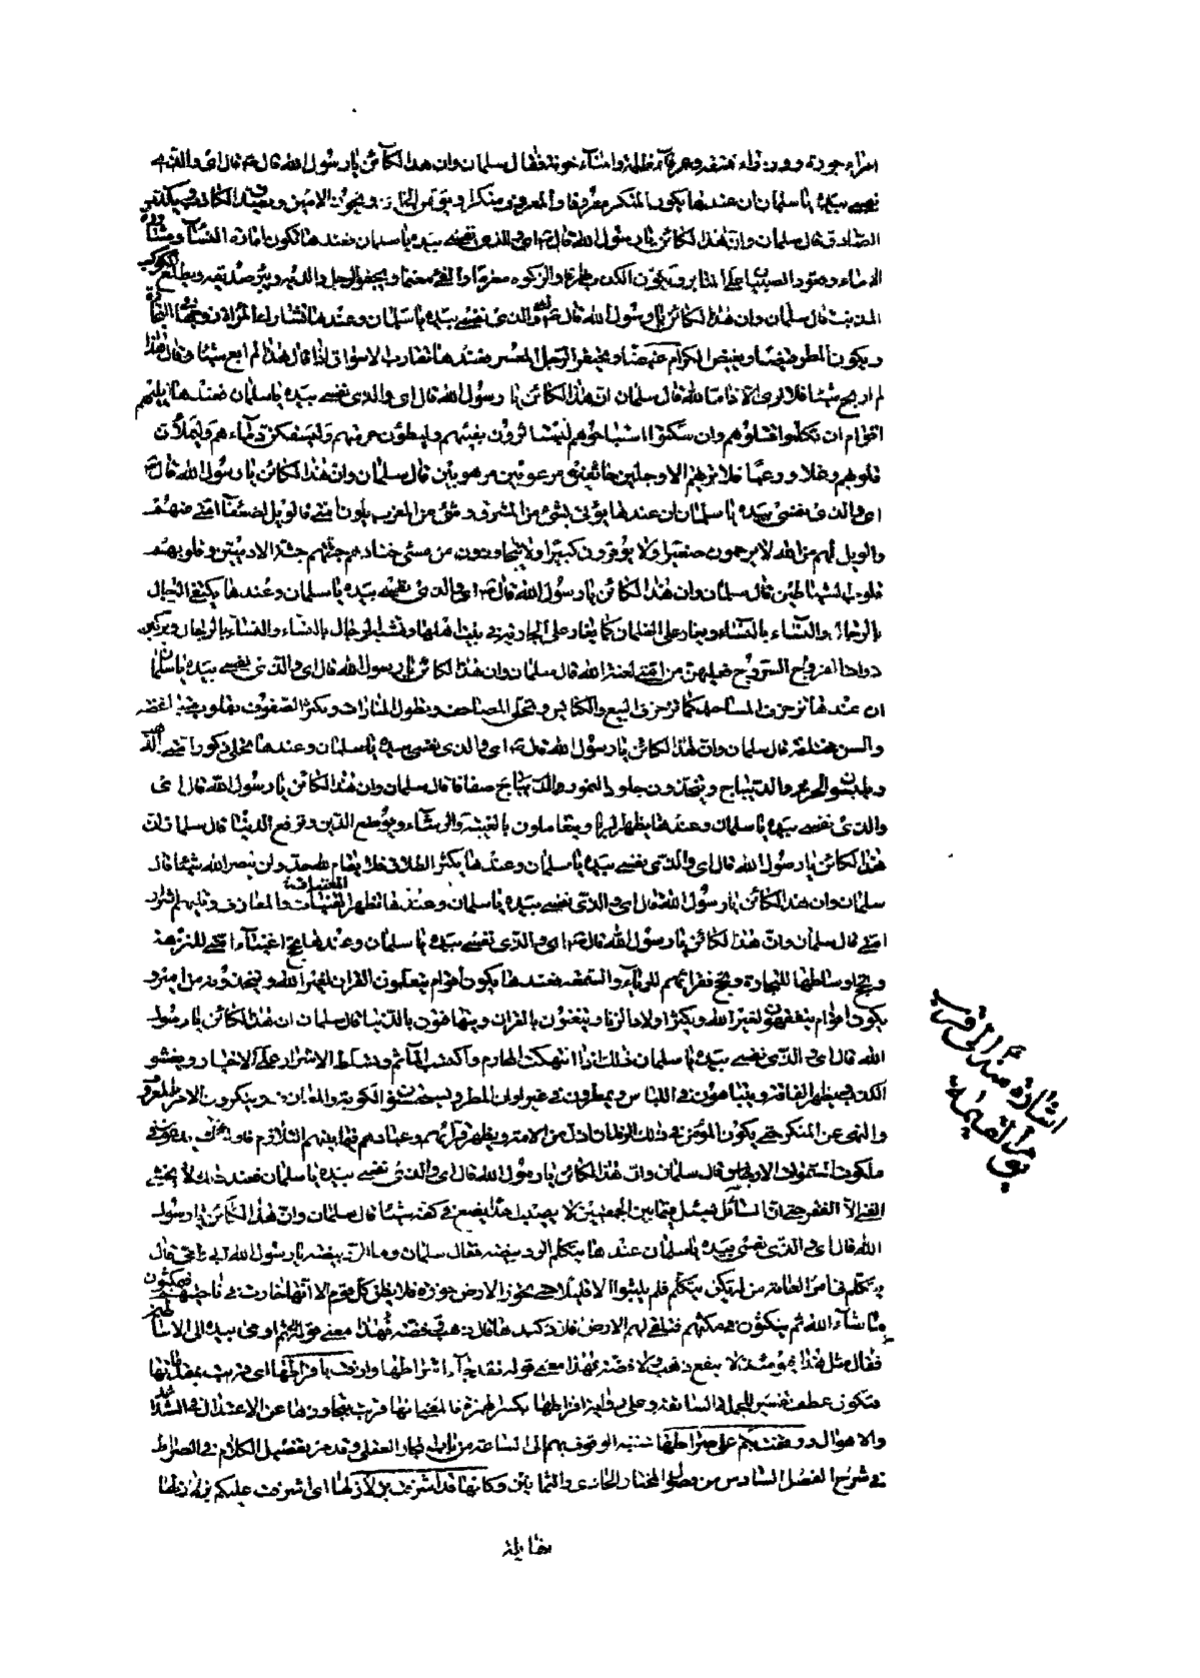 امراء جورة ووزراء فسقة وعرفاء ظلمة وامناء خونة فقال سلمان وان هذا لكائن يا رسول الله قال اى والذى
نفسى بيده يا سلمان ان عندها يكون المنكر معروفا والمعروف منكرا ويؤتمن الخائن ويخون الامين ويصدق الكاذب ويكذب
الصادق قال سلمان وان هذا لكائن يا رسول الله قال اى والذى نفسى بيده يا سلمان فعندها تكون امارة النساء ومشاورة
الاماء وقعود الصبيان على المنابر ويكون الكذب طرفا والزكوة مغرما والفىء مغنما ويجفو الرجل والديه ويبر صديقه ويطلع الكوكب
المذنب قال سلمان وان هذا لكائن يا رسول الله قال اى والذى نفسى بيده يا سلمان وعندها تشارك المرأة زوجها فى التجارة
ويكون المطر قيظا ويغيض الكرام غيضا ويحتقر الرجل المعسر فعندها تقارب الاسواق اذا قال هذا لم ابع شيئا وقال هذا
لم اربح شيئا فلا ترى الا ذاما لله قال سلمان ان هذا لكائن يا رسول الله قال اى والذى نفسى بيده يا سلمان فعندها يليهم
اقوام ان تكلموا قتلوهم وان سكتوا استباحوهم ليستاثرون بفيئهم وليطؤن حرمتهم وليسفكن دماءهم وليملأن
قلوبهم دغلا ورعبا فلا تريهم الا وجلين خائفين مرعوبين مرهوبين قال سلمان وان هذا لكائن يا رسول الله قال
اى والذى نفسى بيده يا سلمان ان عندها يؤتى بشىء من المشرق وشىء من المغرب يلون امتى فالويل لضعفاء امتى منهم
والويل لهم من الله لا يرحمون صغيرا ولا يوقرون كبيرا ولا يتجاوزون من مسىء جثتهم جثة الادميين وقلوبهم
قلوب الشياطين قال سلمان وان هذا لكائن يا رسول الله قال اى والذى نفسى بيده يا سلمان وعندها يكتفى الرجال
بالرجال والنساء بالنساء ويغار على الغلمان كما يغار على الجارية فى بيت اهلها وتشبه الرجال بالنساء والنساء بالرجال ويركبن
ذوات الفروج السروج فعليهن من امتى لعنة الله قال سلمان وان هذا لكائن يا رسول الله قال اى والذى نفسى بيده يا سلمان
ان عندها تزخرف المساجد كما تزخرف البيع والكنائس وتحلى المصاحف وتطول المنارات وتكثر الصفوف بقلوب متباغضة
والسن مختلفة قال سلمان وان هذا لكائن يا رسول الله قال اى والذى نفسى بيده يا سلمان وعندها تحلى ذكور امتى بالذهب
ويلبسون الحرير والديباج ويتخذون جلود النمور صفاقا قال سلمان وان هذا لكائن يا رسول الله قال اى
والذى نفسى بيده يا سلمان وعندها يظهر الربا ويتعاملون بالغيبة والرشاء ويوضع الدين وترفع الدنيا قال سلمان ان
هذا لكائن يا رسول الله قال اى والذى نفسى بيده يا سلمان وعندها يكثر الطلاق فلا يقام لله حد ولن يضر الله شيئا قال
سلمان وان هذا لكائن يا رسول الله قال اى والذى نفسى بيده يا سلمان وعندها تظهر القينات والمعازف ويليهم اشرار
امتى قال سلمان وان هذا لكائن يا رسول الله قال اى والذى نفسى بيده يا سلمان وعندها يحج اغنياء امتى للنزهة
ويحج اوساطها للتجارة ويحج فقرائهم للرياء والسمعة فعندها يكون اقوام يتعلمون القران لغير الله ويتخذونه مزامير و
يكون اقوام يتفقهون لغير الله ويكثر اولاد الزنا ويتغنون بالقران ويتهافتون بالدنيا قال سلمان ان هذا لكائن يا رسول
الله قال اى والذى نفسى بيده يا سلمان ذلك اذا انتهكت المحارم واكتسب المآثم وتسلط الاشرار على الاخيار ويفشو
الكذب ويظهر الفاقة ويتباهون فى اللباس ويمطرون فى غير اوان المطر ويستحسنون الكوبة والمعازف وينكرون الامر بالمعروف
والنهى عن المنكر حتى يكون المؤمن فى ذلك الزمان اذل من الامة ويظهر قرائهم وعبادهم فيما بينهم التلاوم فاولئك يدعون فى
ملكوت السموات الارجاس قال سلمان وان هذا لكائن يا رسول الله قال اى والذى نفسى بيده يا سلمان فعند ذلك لا يخشى
الغنى الا الفقر حتى ان السائل ليسئل فيما بين الجمعتين لا يصيب احدا يضع فى كفه شيئا قال سلمان وان هذا لكائن يا رسول
الله قال اى والذى نفسى بيده يا سلمان عندها يتكلم الرويبضة فقال سلمان وما الرويبضة يا رسول الله قال
يتكلم فى امر العامة من لم يكن يتكلم فلم يلبثوا الا قليلا حتى تخور الارض خورة فلا يظن كل قوم الا انها خارت فى ناحيتهم فيمكثون
ما شاء الله ثم ينكتون فى مكثهم فتلقى لهم الارض افلاذ كبدها قال ذهب وفضة فهذا معنى قوله ثم اومى بيده الى الاساطين
فقال مثل هذا فيومئذ لا ينفع ذهب ولا فضة فهذا معنى قوله فقد جاء اشراطها وازفت بافراطها اى قربت بمقدماتها
فتكون عطف تفسير للجملة السابقة وعلى رواية افراطها بكسر الهمزة فالمعنى انها قربت بتجاوزها عن الاعتدال فى الشدائد
والاهوال ووقفت بكم على صراطها نسبة الوقوف بهم الى الساعة من باب المجاز العقلى وقد مر تفصيل الكلام فى الصراط
فى شرح الفصل السادس من المختار الحادى والثمانين وكانها قد اشرفت بزلازلها اى اشرفت عليكم بزلازلها
اشارة منه الى قرب
يوم القيمة
مقابلة